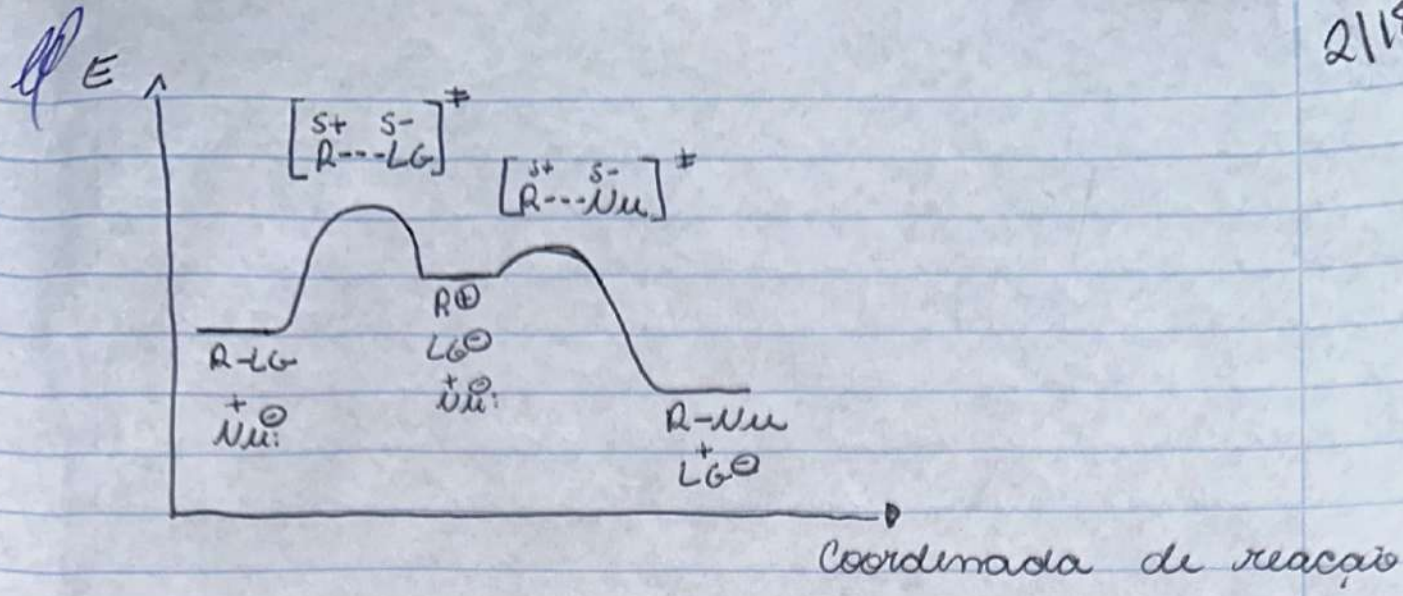 2/18
E
[R---LG]‡
δ+ δ-
[R---Nu]‡
δ+ δ-
R⊕
LG⊖
+
Nu:⊖
R-LG
+
Nu:⊖
R-Nu
+
LG⊖
Coordenada de reacção